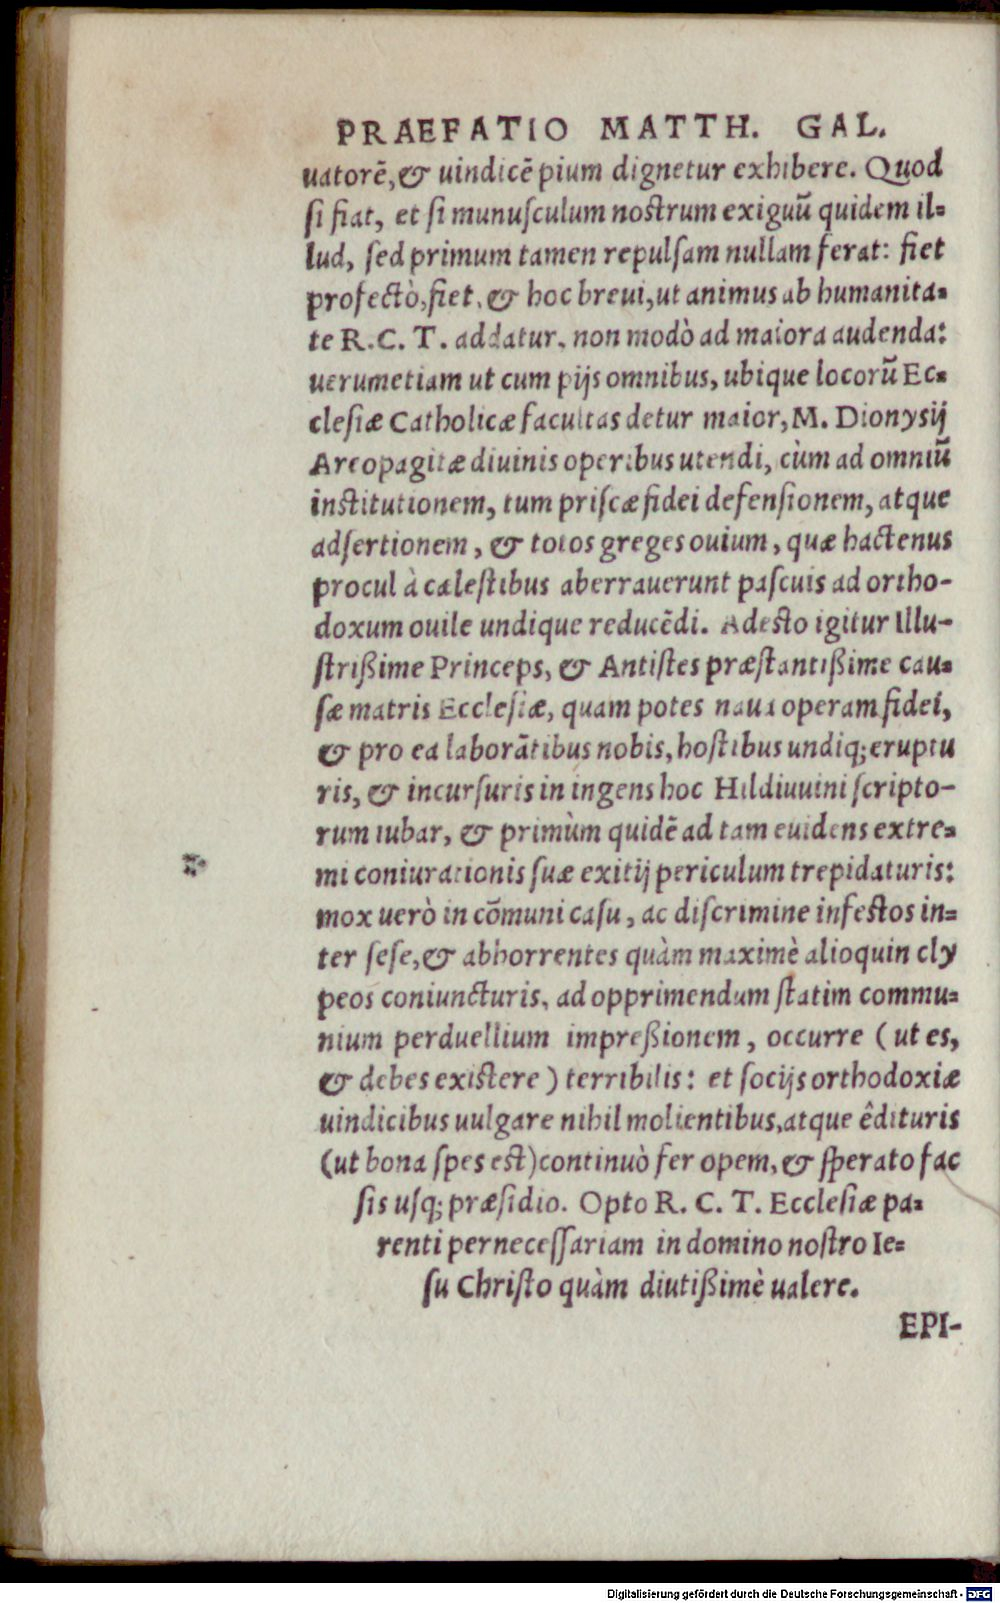 PRAEFATIO MATTH. GAL.
uatorē, & uindicē pium dignetur exhibere. Quod
si fiat, et si munusculum nostrum exiguū quidem il=
lud, sed primum tamen repulsam nullam ferat: fiet
profectò, fiet, & hoc breui, ut animus ab humanita=
te R. C. T. addatur, non modò ad maiora audenda:
uerumetiam ut cum pijs omnibus, ubique locorū Ec=
clesiæ Catholicæ facultas detur maior, M. Dionysij
Areopagitæ diuinis operibus utendi, cùm ad omniū
institutionem, tum priscæ fidei defensionem, atque
adsertionem, & totos greges ouium, quæ hactenus
procul à cælestibus aberrauerunt pascuis ad ortho-
doxum ouile undique reducēdi. Adesto igitur Illu-
strißime Princeps, & Antistes præstantißime cau=
sæ matris Ecclesiæ, quam potes naua operam fidei,
& pro ea laborātibus nobis, hostibus undiq; eruptu
ris, & incursuris in ingens hoc Hilduuini scripto-
rum iubar, & primùm quidē ad tam euidens extre=
mi coniurationis suæ exitij periculum trepidaturis:
mox uerò in cōmuni casu, ac discrimine infestos in=
ter sese, & abhorrentes quàm maximè alioquin cly
peos coniuncturis, ad opprimendum statim commu=
nium perduellium impreßionem, occurre (ut es,
& debes existere) terribilis: et socijs orthodoxiæ
uindicibus uulgare nihil molientibus, atque êdituris
(ut bona spes est) continuò fer opem, & sperato fac
sis usq; præsidio. Opto R. C. T. Ecclesiæ pa=
renti pernecessariam in domino nostro Ie=
su Christo quàm diutißimè ualere.
EPI-
Digitalisierung gefördert durch die Deutsche Forschungsgemeinschaft - DFG